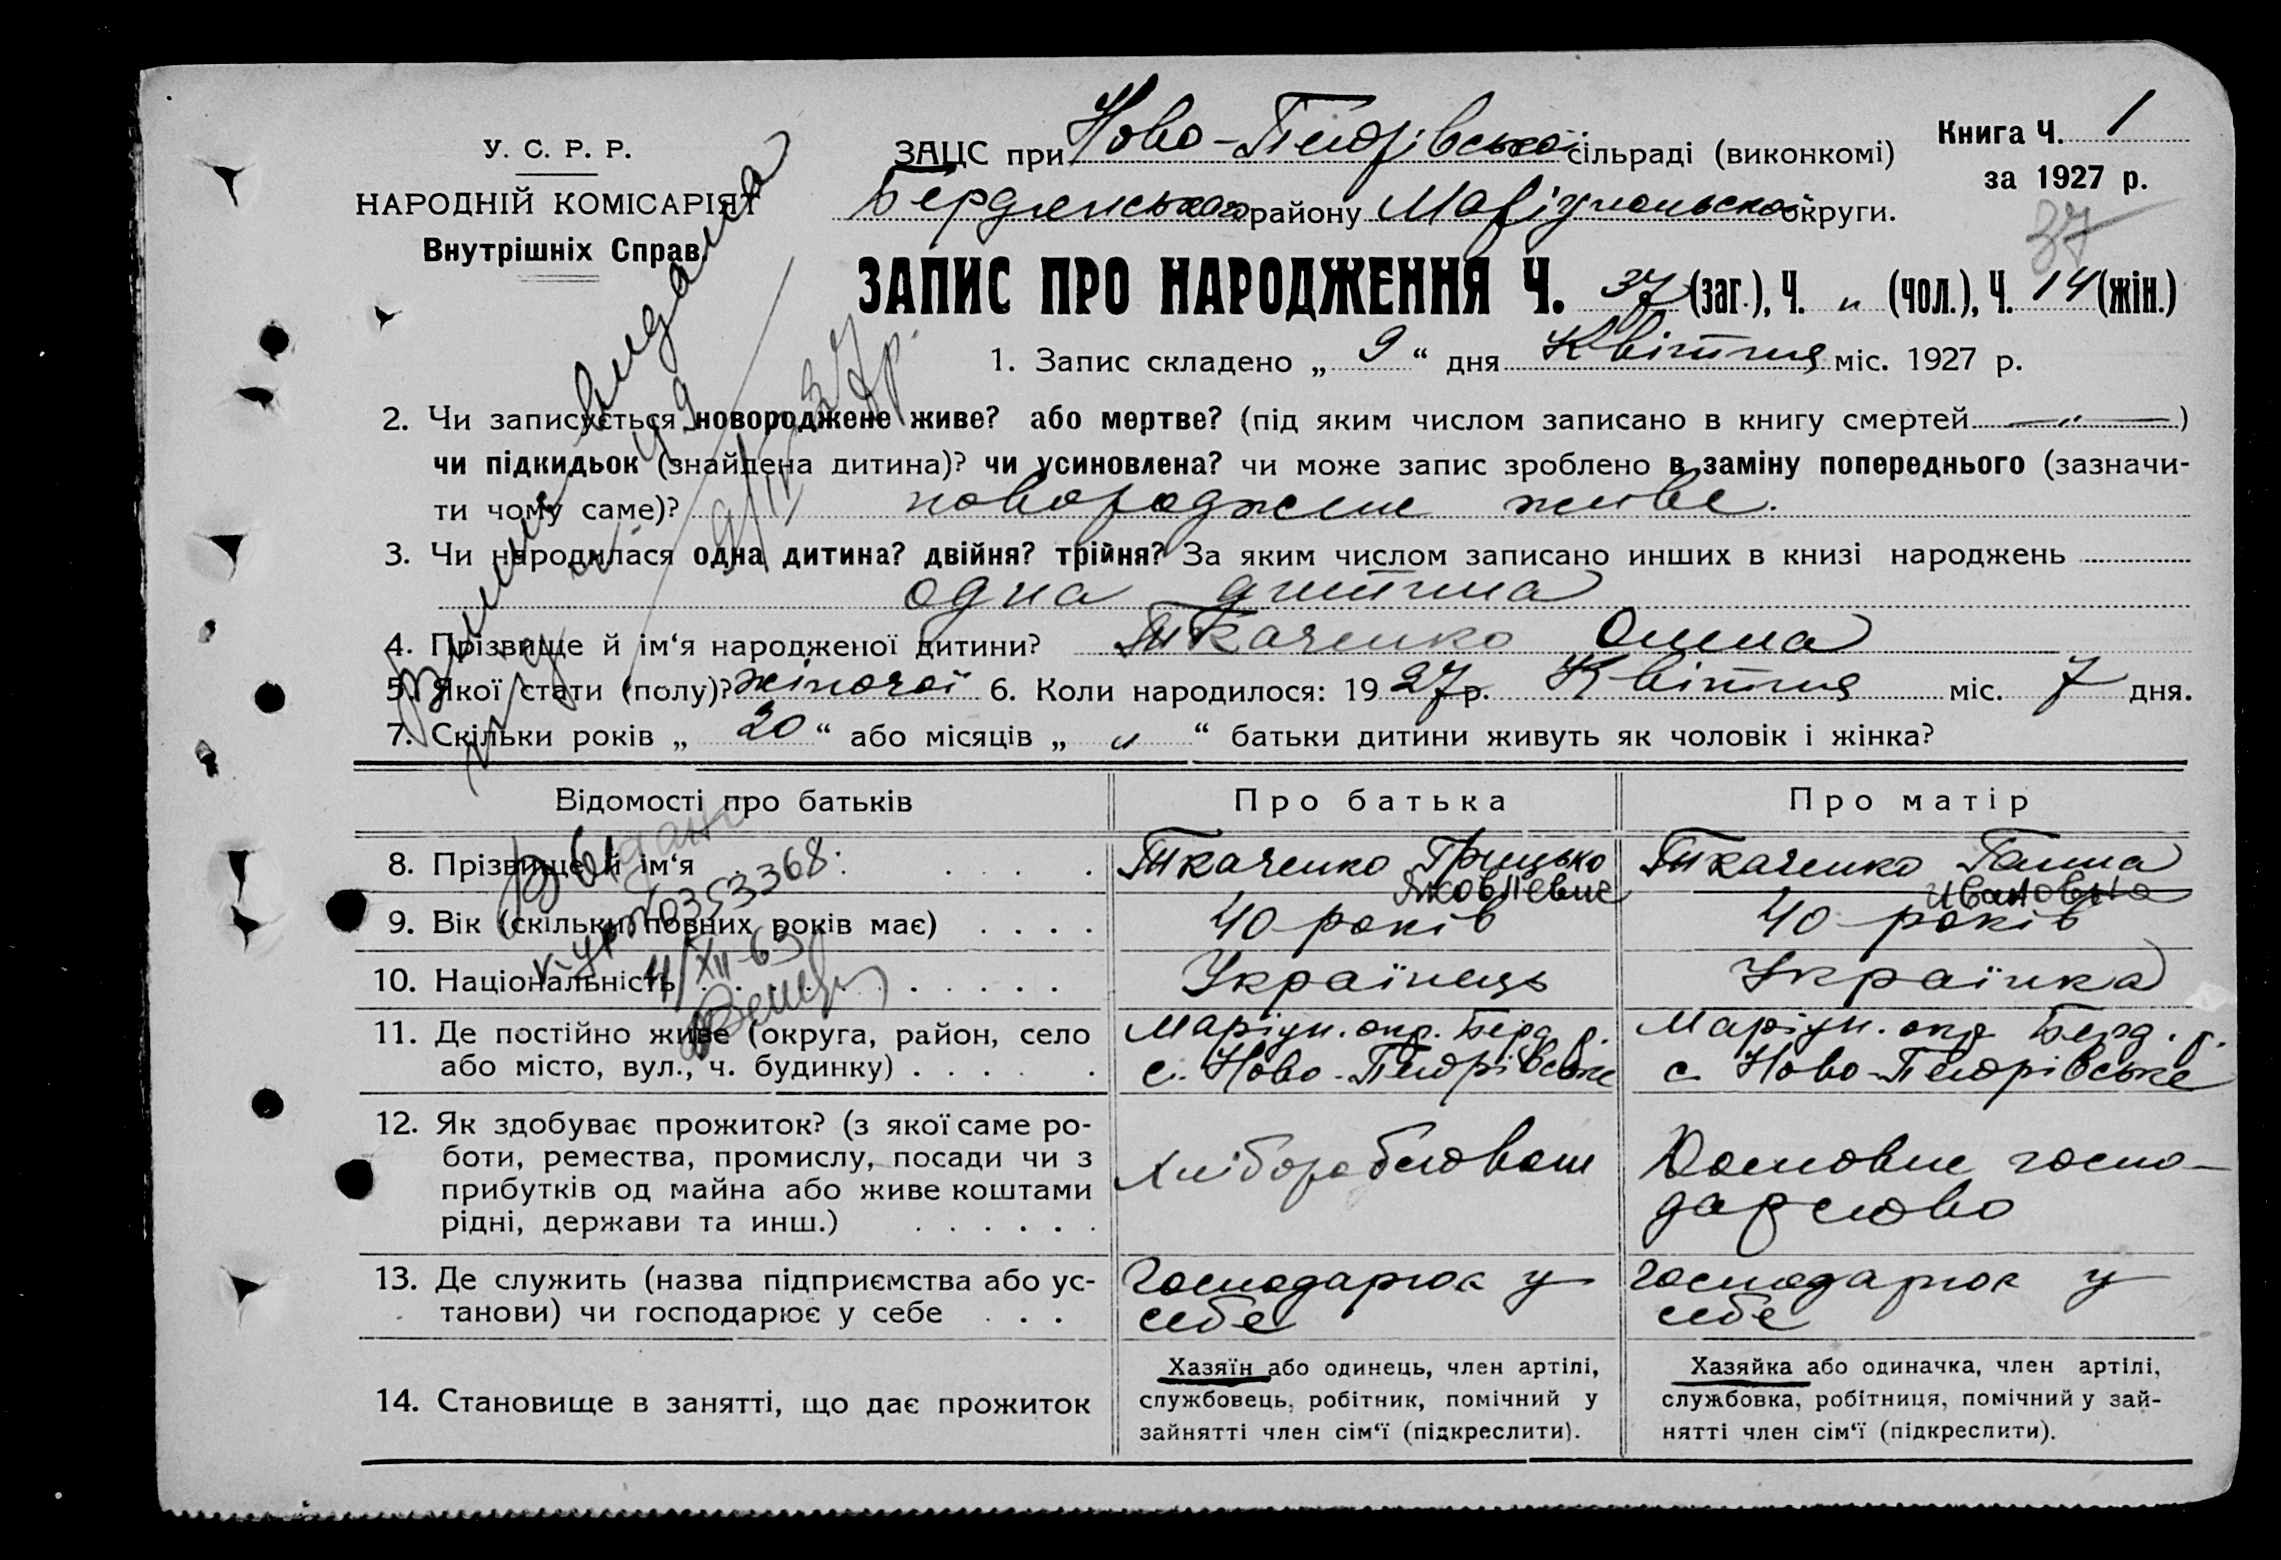 У. С. Р. Р.
НАРОДНІЙ КОМІСАРІЯТ
Внутрішніх Справ.
ЗАЦС при Ново-Петрівської сільраді (виконкомі)
Бердянського району Маріупольської округи.
Книга Ч. 1
за 1927 р.
37
ЗАПИС ПРО НАРОДЖЕННЯ Ч. 37 (заг.), Ч. „ (чол.), Ч. 14 (жін.)
1. Запис складено „ 9 “ дня Квітня міс. 1927 р.
2. Чи записується новороджене живе? або мертве? (під яким числом записано в книгу смертей —„—)
чи підкидьок (знайдена дитина)? чи усиновлена? чи може запис зроблено в заміну попереднього (зазначи-
ти чому саме)? новороджене живе.
3. Чи народилася одна дитина? двійня? трійня? За яким числом записано инших в книзі народжень
одна дитина
4. Прізвище й ім‘я народженої дитини? Ткаченко Олена
5. Якої стати (полу)? жіночої 6. Коли народилося: 1927 р. Квітня міс. 7 дня.
7. Скільки років „ 20 “ або місяців „ „ “ батьки дитини живуть як чоловік і жінка?
видана
9/IX 37 р.
Відомості про батьків Про батька Про матір
8. Прізвище й ім‘я Ткаченко Грицько Яковлевич Ткаченко Ганна Ивановна
9. Вік (скільки повних років має) 40 років 40 років
10. Національність Українець Українка
11. Де постійно живе (округа, район, село Маріуп. окр. Берд. р. Маріуп. окр. Берд. р.
або місто, вул., ч. будинку) с. Ново-Петрівське с. Ново-Петрівське
12. Як здобуває прожиток? (з якої саме ро-
боти, ремества, промислу, посади чи з Хліборобством Домовне госпо-
прибутків од майна або живе коштами дарство
рідні, держави та инш.)
13. Де служить (назва підприємства або ус- Господарює у Господарює у
танови) чи господарює у себе себе себе
14. Становище в занятті, що дає прожиток
Хазяїн або одинець, член артілі,
службовець, робітник, помічний у
зайнятті член сім‘ї (підкреслити).
Хазяйка або одиначка, член артілі,
службовка, робітниця, помічний у зай-
нятті член сім‘ї (підкреслити).
Выдано
0353368
4/XII-63